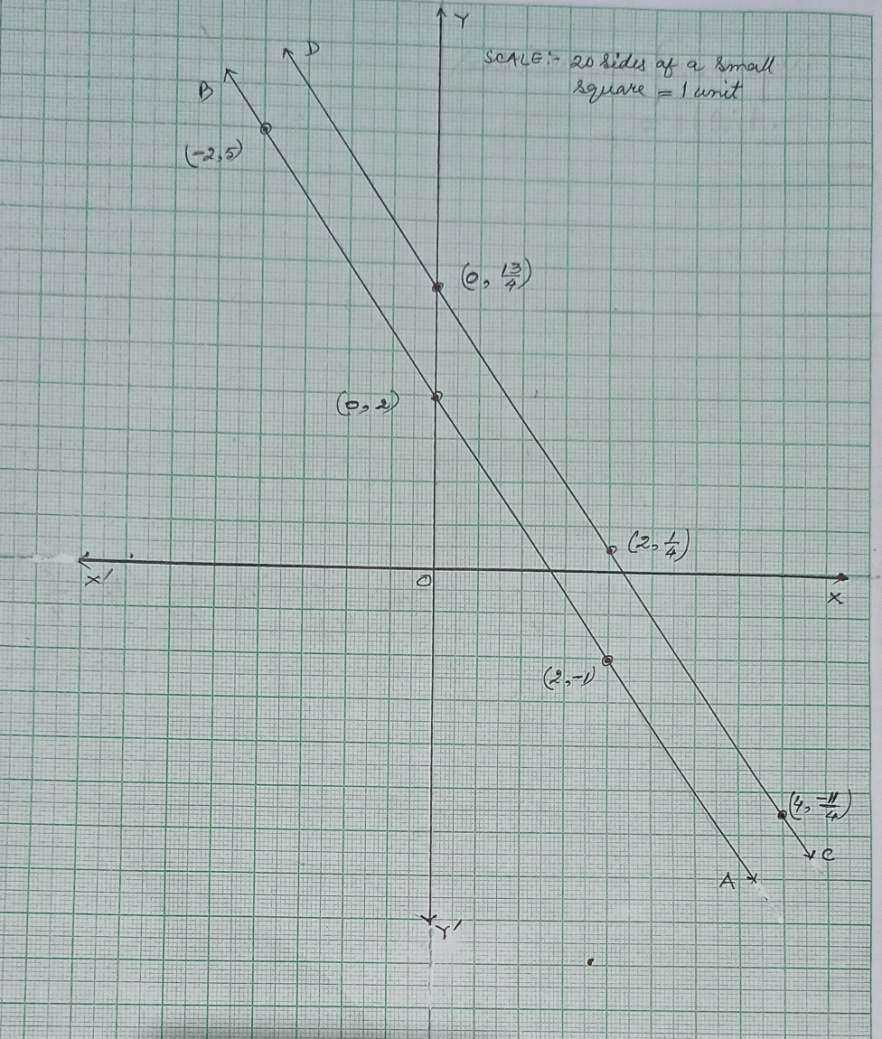 Y
D
SCALE:- 20 sides of a small
square = 1 unit
B
(-2,5)
(0, 13/4)
(0, 2)
(2, 1/4)
X'
O
X
(2,-1)
(4, -11/4)
C
A
Y'